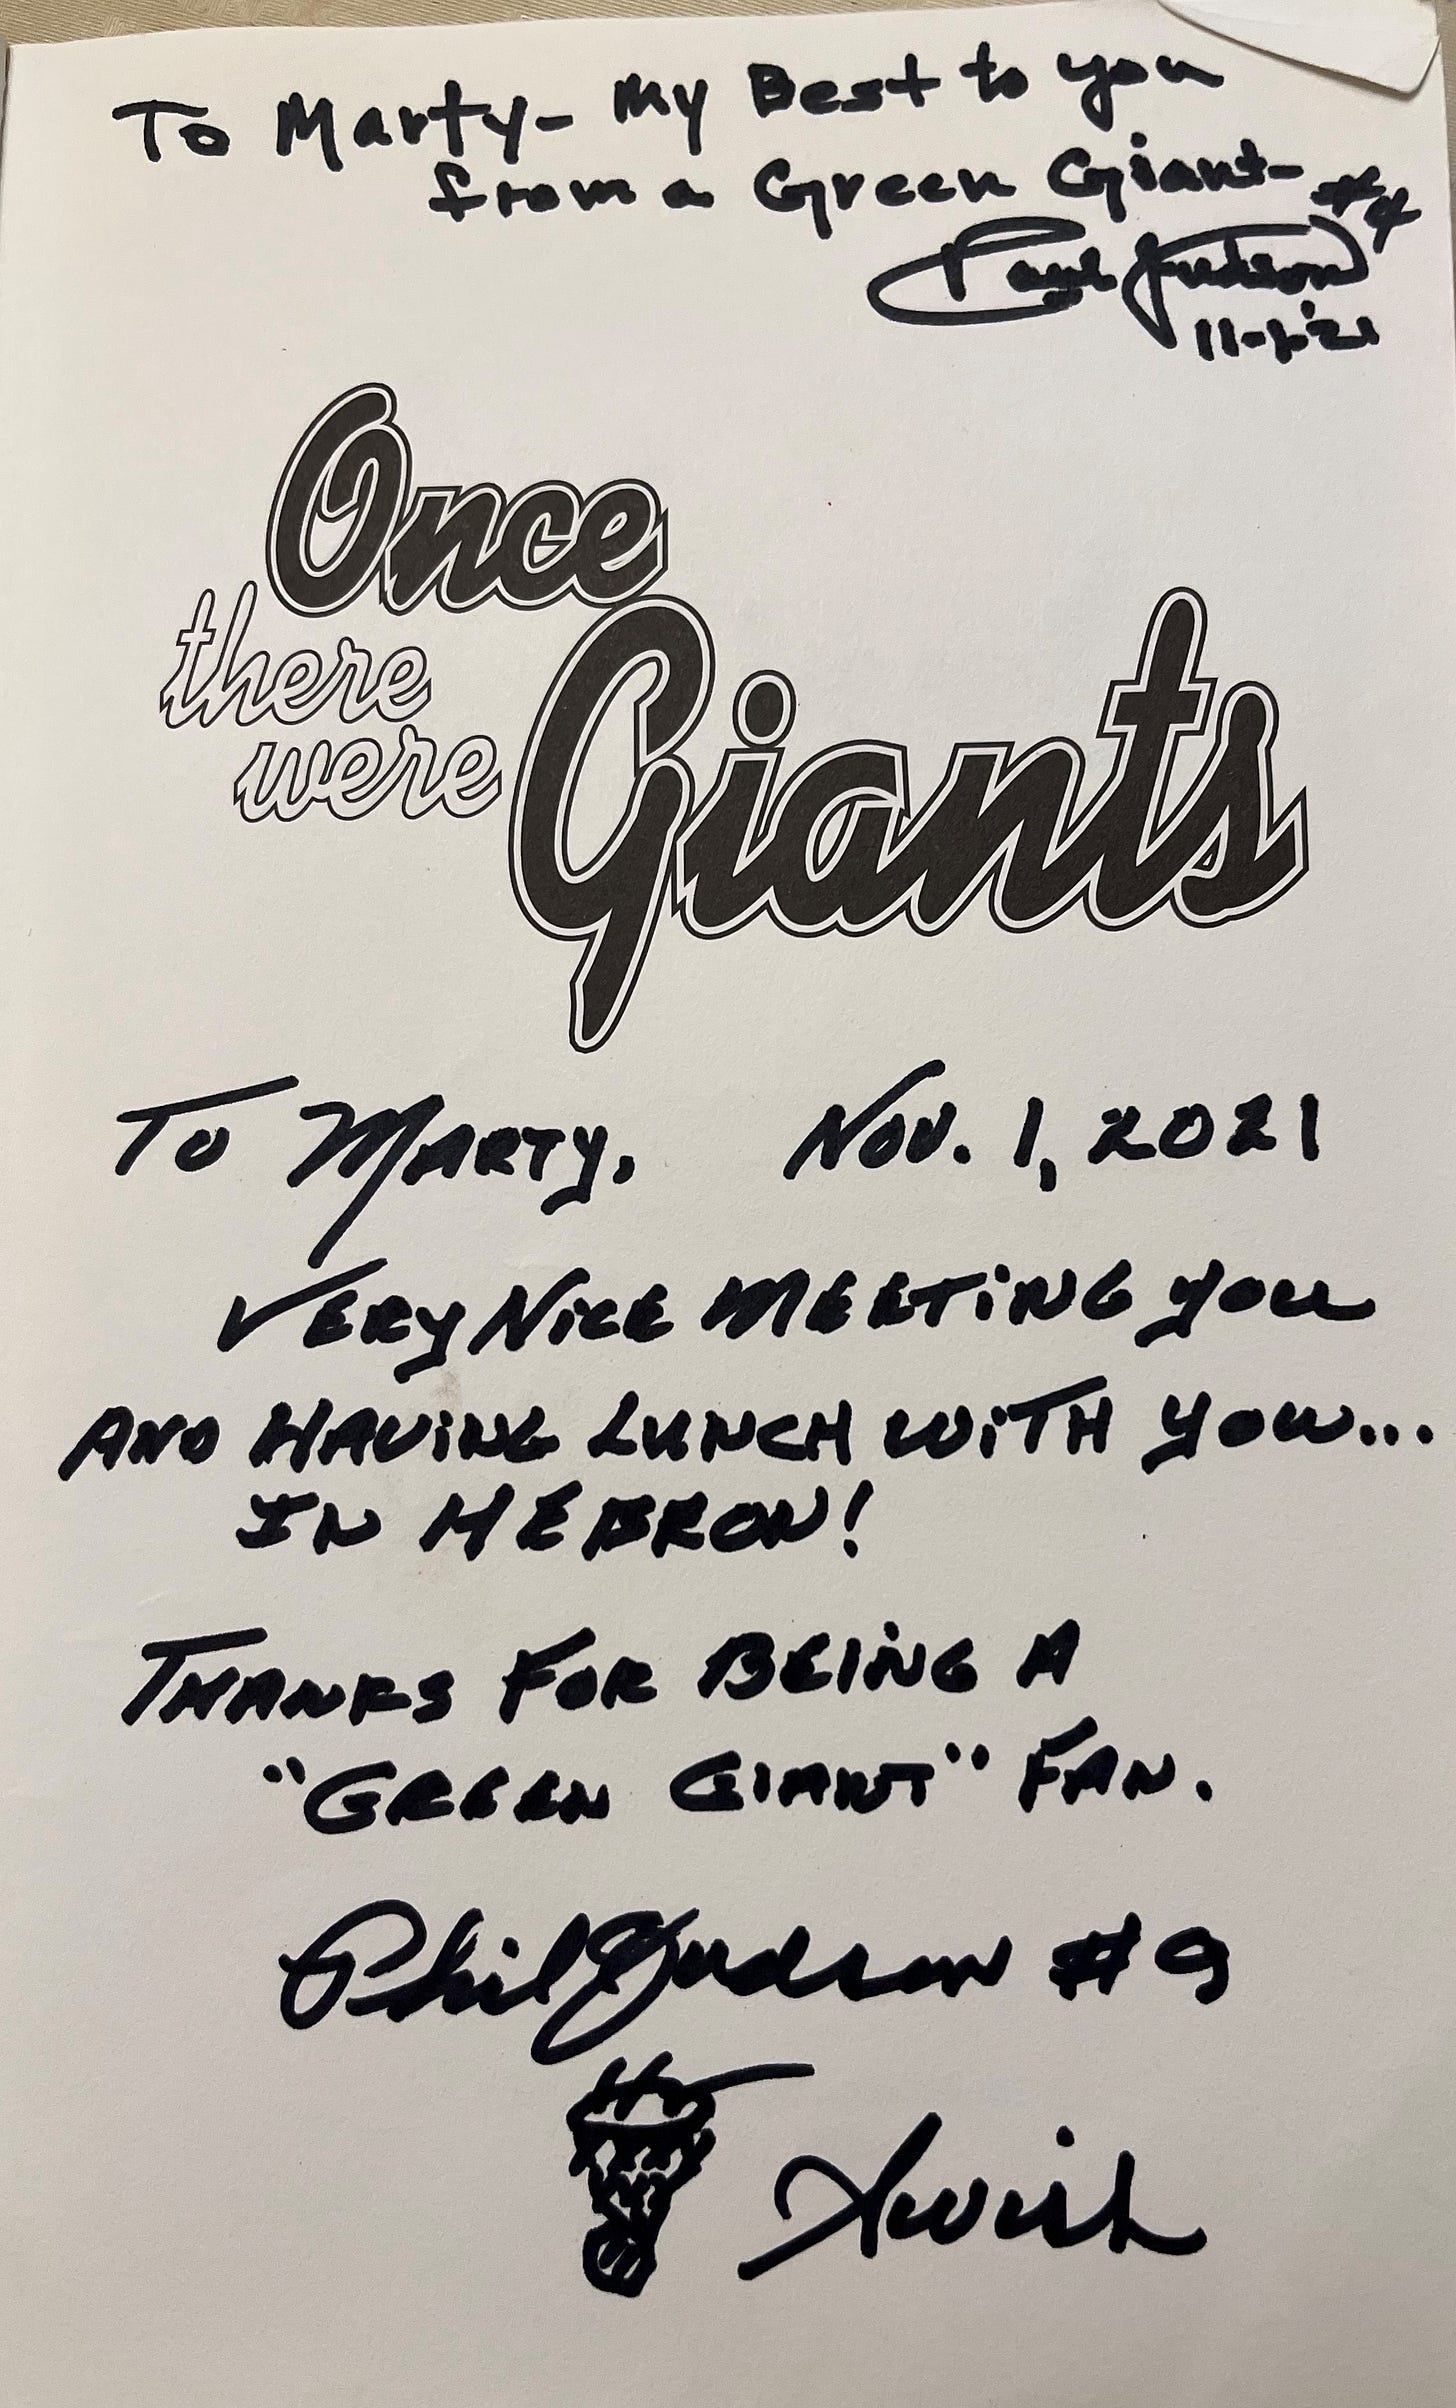 To Marty- My Best to you
from a Green Giant- #4
Paul Judson
11-1-'21
Once
there
were
Giants
To Marty, Nov. 1, 2021
VERY NICE MEETING you
AND HAViNG LUNCH WiTH YOU...
IN HEBRON!
THANKS FOR BEiNG A
"GREEN GIANT" FAN.
Phil Judson #9
Swish